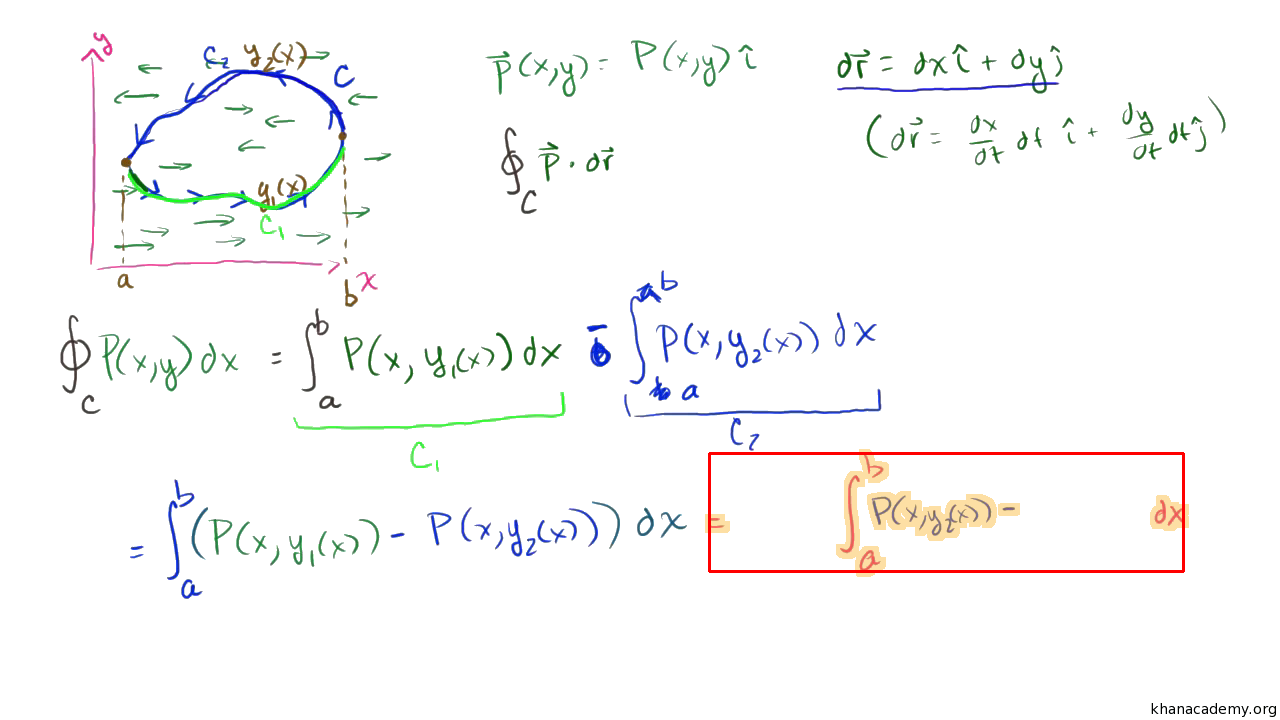 y
C₂ y₂(x)
C
y₁(x)
C₁
a
b
x
p⃗(x,y) = P(x,y) î
dr⃗ = dx î + dy ĵ
(dr⃗ = dx/dt dt î + dy/dt dt ĵ)
∮_C p⃗ · dr⃗
∮_C P(x,y) dx = ∫_a^b P(x, y₁(x)) dx - ∫_a^b P(x, y₂(x)) dx
C₁
C₂
= ∫_a^b (P(x, y₁(x)) - P(x, y₂(x))) dx = ∫_a^b P(x, y₂(x)) - dx
khanacademy.org